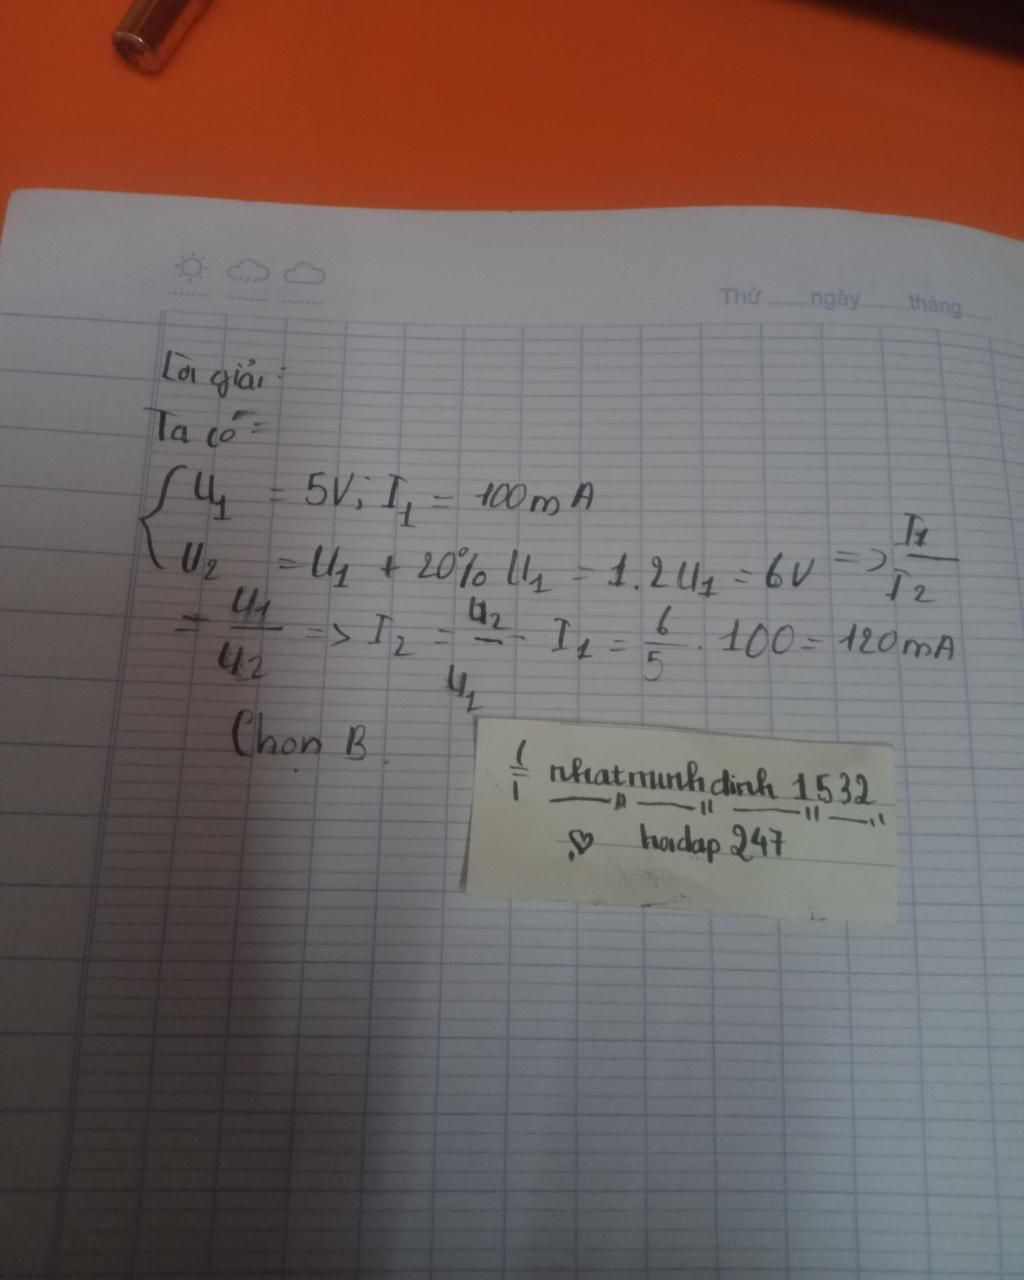 Thứ ngày tháng
Lời giải:
Ta có:
U1 = 5V; I1 = 100mA
U2 = U1 + 20% U1 = 1.2U1 = 6V => I1/I2
= U1/U2 => I2 = U2/U1 · I1 = 6/5 . 100 = 120mA
Chọn B.
nhatminhdinh 1532
hoidap 247